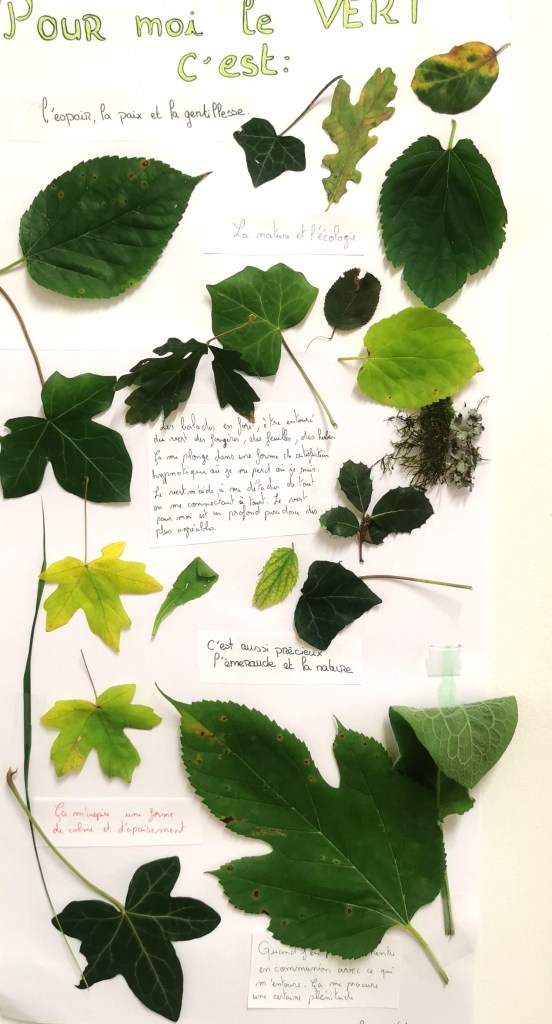 Pour moi le VERT
c'est:
l'espoir, la paix et la gentillesse.
La nature et l'écologie
Les balades en forêt, être entouré
du vert des fougères, des feuilles, des
Ça me plonge dans une forme de satisfaction
hypnotique où je me perd où je suis.
Le vert m'aide à me détacher de tout
en me connectant à tout. Le vert
pour moi est un profond paradoxe des
plus agréables.
C'est aussi précieux
l'émeraude et la nature
Ça m'inspire une forme
de calme et d'apaisement
Quand
en communion avec ce qui
m'entoure. Ça me procure
une certaine plénitude